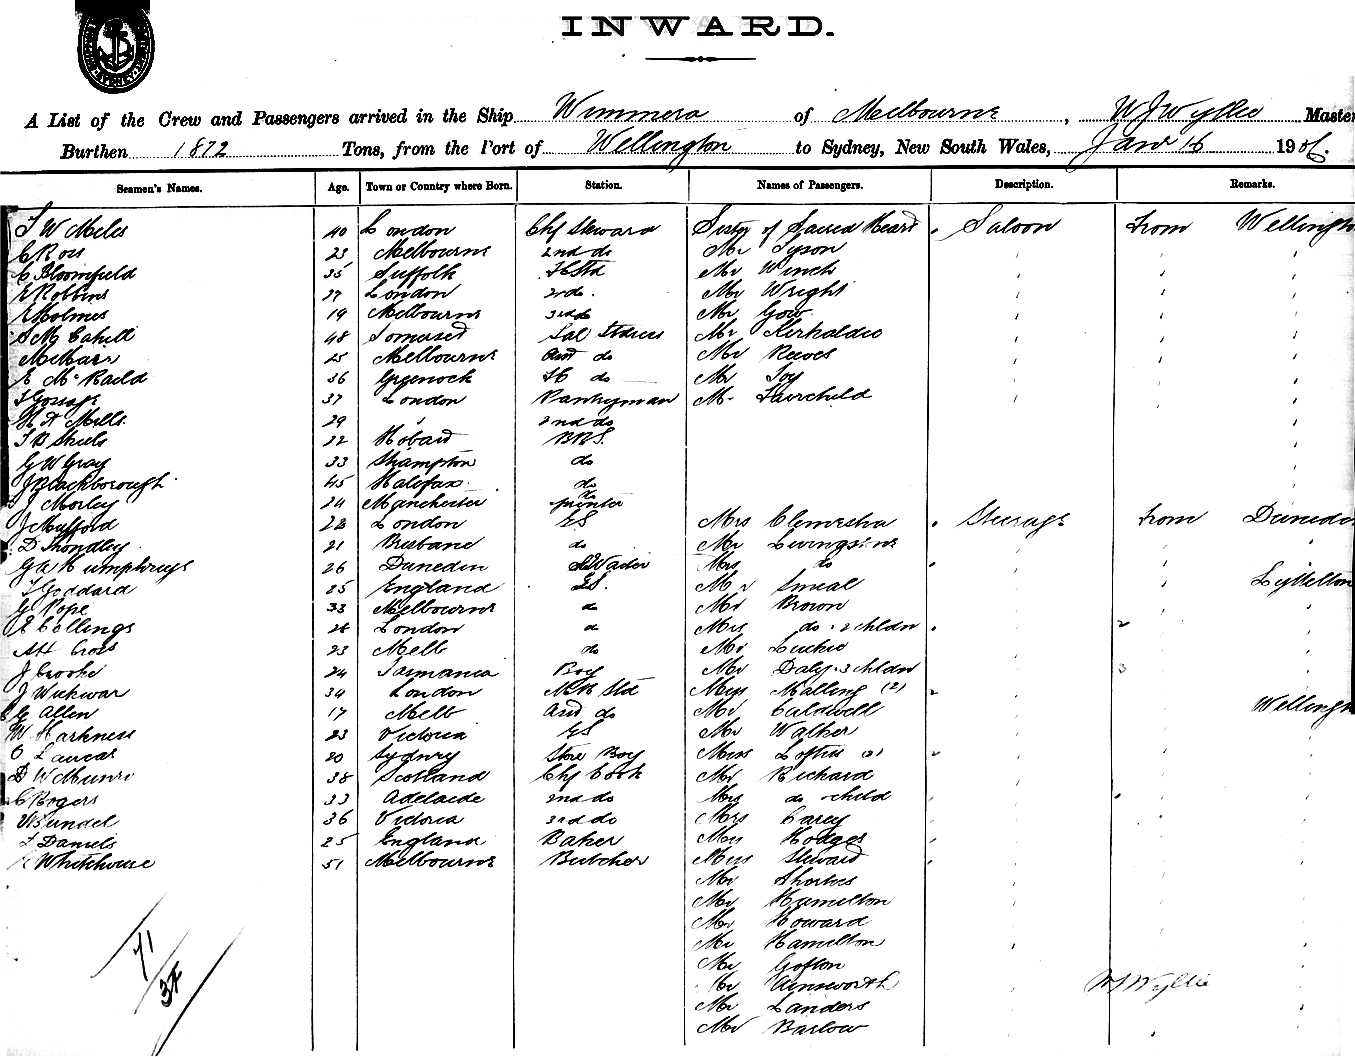 INWARD.
A List of the Crew and Passengers arrived in the Ship Wimmera of Melbourne, W J Wyllie Master
Burthen 1872 Tons, from the Port of Wellington to Sydney, New South Wales, Jany 16 1906.
Seamen's Names. Age. Town or Country where Born. Station. Names of Passengers. Description. Remarks.
W Miles 40 London Chf Steward Sister of Sacred Heart Saloon From Wellingt
C Ross 23 Melbourne 2nd do Mr Tyson
C Bloomfield 35 Suffolk Mr Winch
E Robbins 27 London 2nd do. Mr Wright
E Holmes 19 Melbourne 3rd do Mr Gow
S Mc Cahill 48 Somerset Sal Stdress Mr Kirkaldie
M O'Hara 25 Melbourne Asst do Mr Reeves
E Mc Badd 36 Greenock do Mr Joy
T Gossage 37 London Pantryman Mr Fairchild
H A Mills. 29 " 2nd do
T B Skeels 22 Hobart BRS.
G W Gray 33 Shampton do
J Blackborough 45 Halifax. do
J Morley 24 Manchester do printer
J Mufford 22 London GS Mrs Clemesha Steerage From Dunedi
D Thondley 21 Brisbane do Mr Livingstone
G A Humphries 26 Dunedin Waiter Mrs do
T Goddard 25 England GS. Mr Smeal Lyttelton
G Pope 33 Melbourne do Mr Brown
E Collings 28 London do Mrs do. 2 chldn 2
A H Cross 23 Melb do Mr Luckie
J Crooke 24 Tasmania Boy Mr Daly. 3 chldn 3
J Wickwar 34 London Std Misses Malling (2) 2
G Allen 17 Melb Asst do Mr Caldwell Wellingt
W Harkness 23 Victoria GS Mr Walker
C Laucas 20 Sydney Store Boy Misses Loftus (2) 2
D W Munro 38 Scotland Chf Cook Mr Richard
C Rogers 33 Adelaide 2nd do Mrs do child
V Bundel 36 Victoria 3rd do Mrs Carey
F Daniels 25 England Baker Miss Hodges
Whitehouse 51 Melbourne Butcher Miss Steward
Mr Shortus
Mr Hamilton
Mr Howard
Mr Hamilton
Mr Gofton
Mr Ainsworth
W J Wyllie
Mr Landers
Mr Barlow
71
37